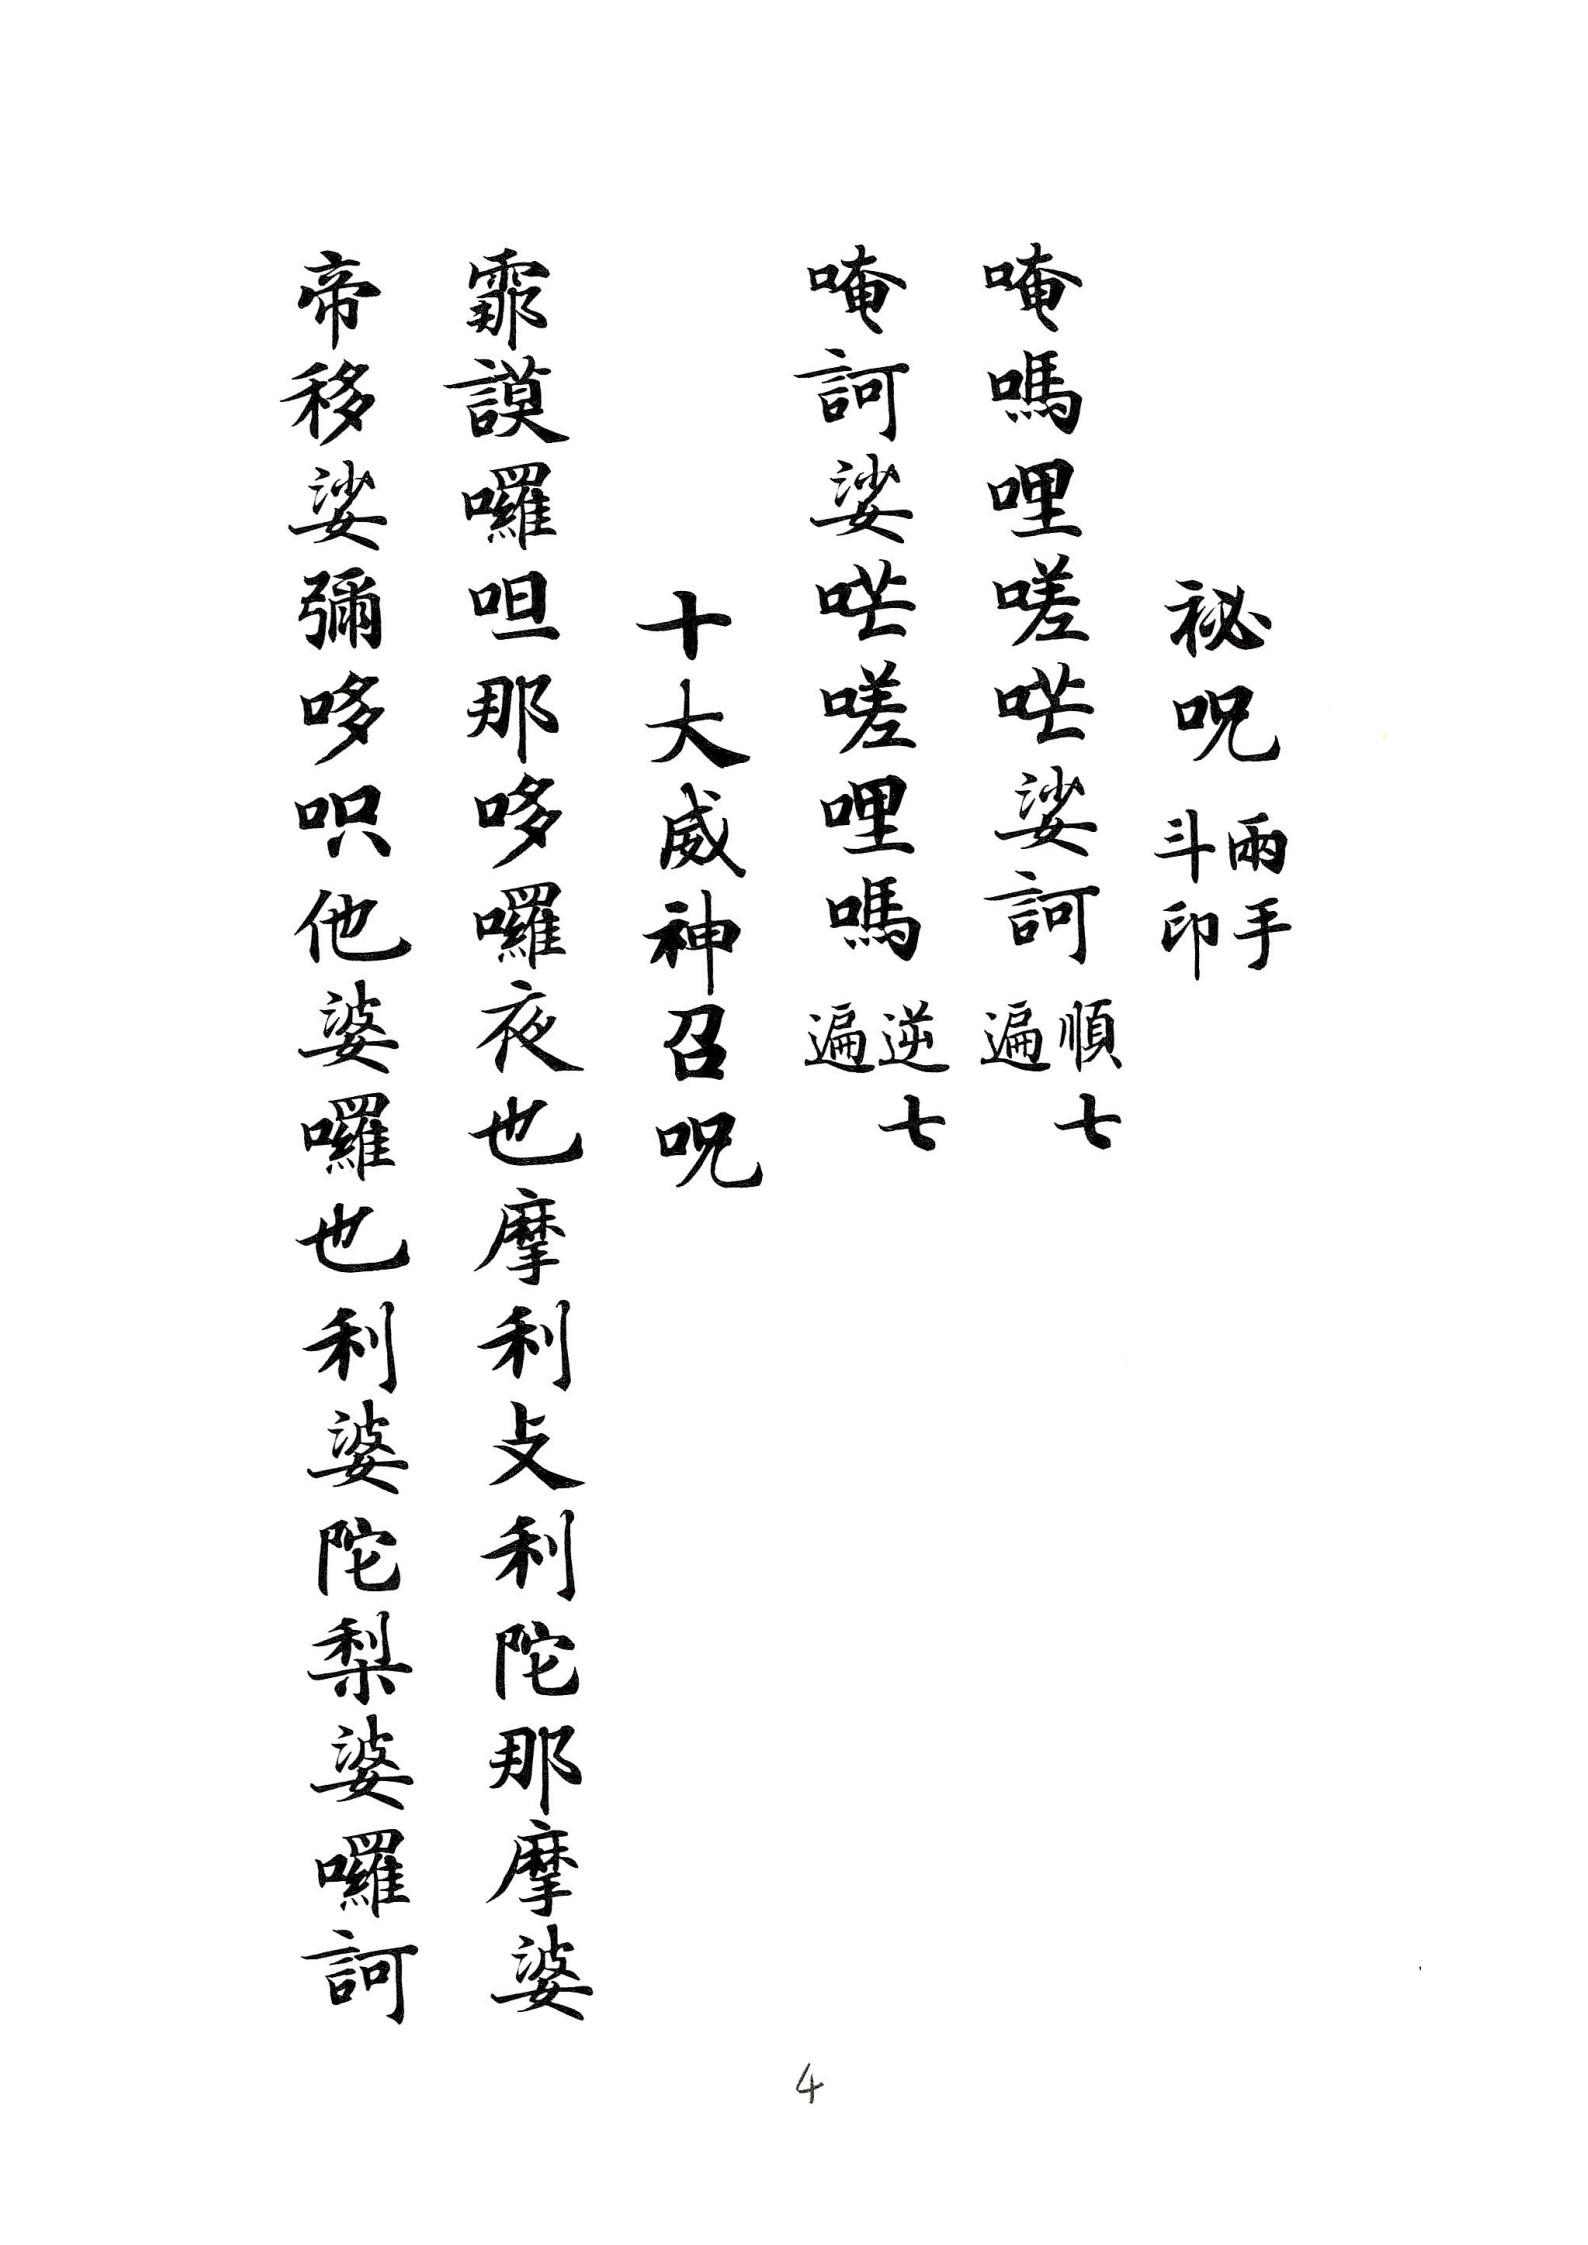 祕呪 兩手斗印
唵嗎哩嗟哤娑訶 順七遍
唵訶娑哤嗟哩嗎 逆七遍
十大威神召呪
謨囉呾那哆囉夜也摩利攴利陀那摩婆
帝移娑彌哆呮他婆囉也利婆陀梨婆囉訶
4